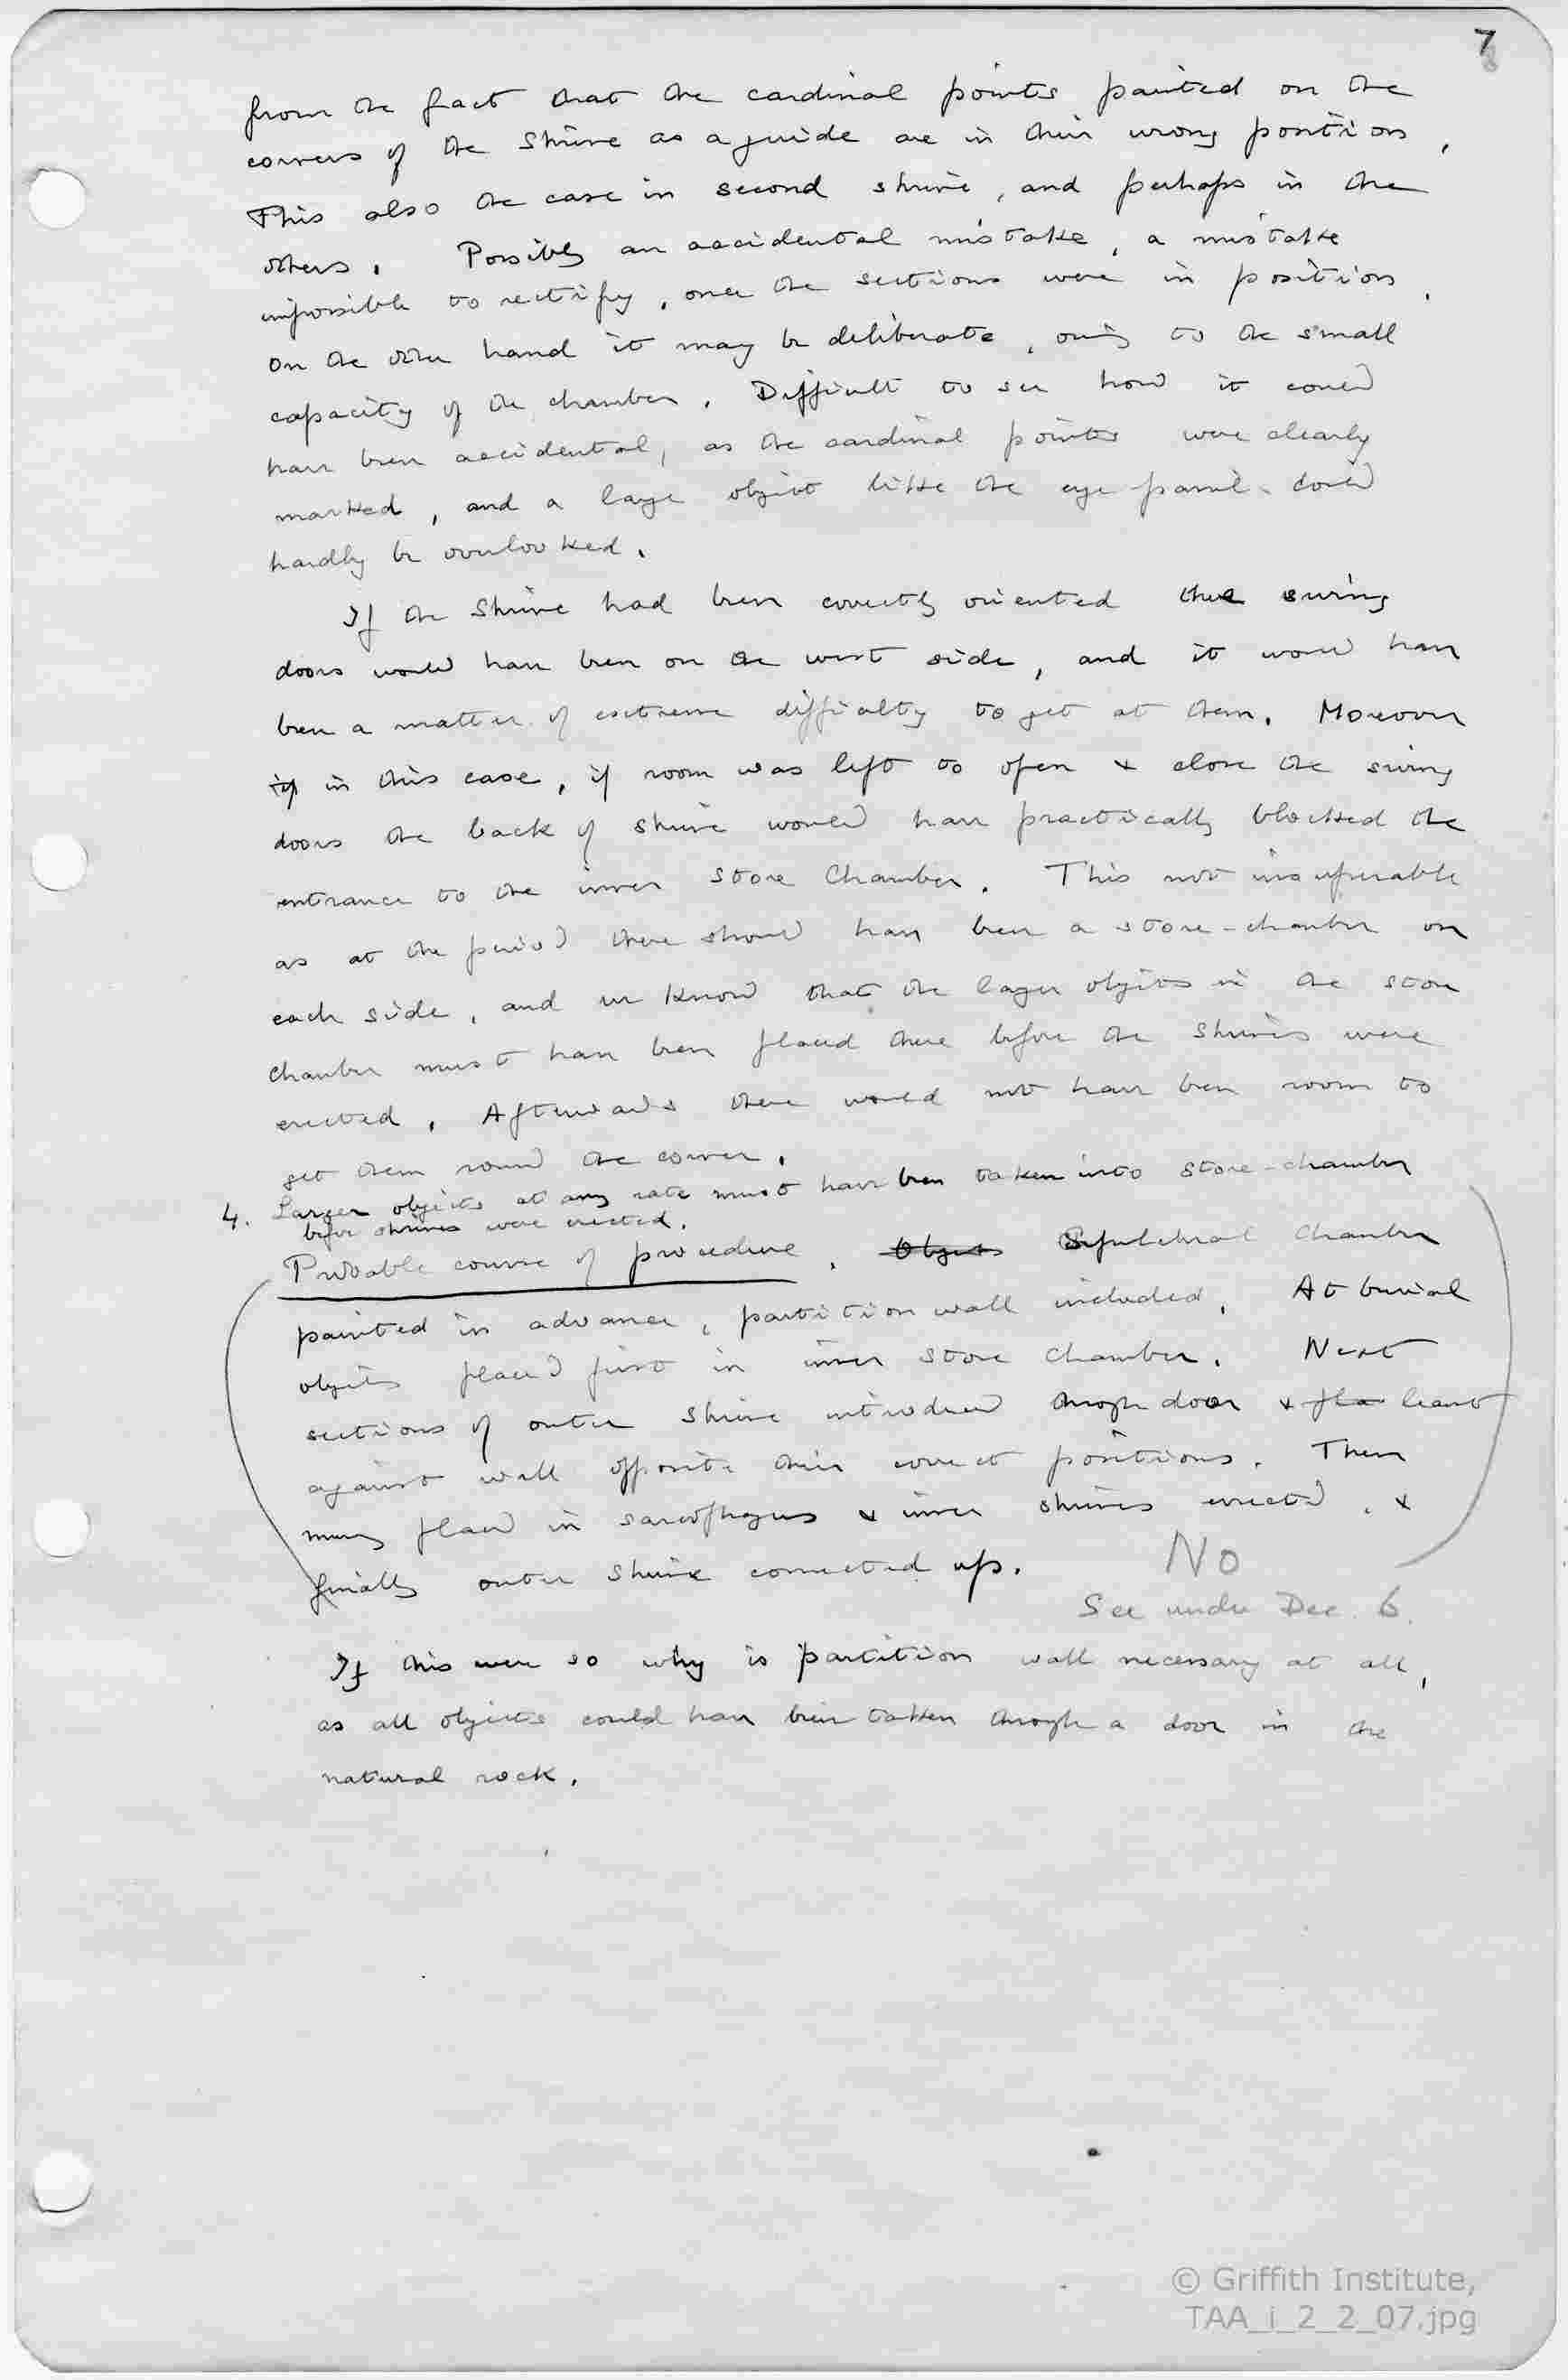 7
from the fact that the cardinal points painted on the
corners of the shrine as a guide are in their wrong position,
This also the case in second shrine, and perhaps in the
others. Possibly an accidental mistake, a mistake
impossible to rectify, once the sections were in position.
On the other hand it may be deliberate, owing to the small
capacity of the chamber. Difficult to see how it could
have been accidental, as the cardinal points were clearly
marked, and a large object like the eye-panel could
hardly be overlooked.
If the shrine had been correctly oriented the swing
doors would have been on the west side, and it would have
been a matter of extreme difficulty to get at them. Moreover
if in this case, if room was left to open & close the swing
doors the back of shrine would have practically blocked the
entrance to the inner store chamber. This not insuperable
as at the period there should have been a store-chamber on
each side, and we know that the larger objects in the store
chamber must have been placed there before the shrines were
erected. Afterwards there would not have been room to
get them round the corner.
4. Larger objects at any rate must have been taken into store-chamber
before shrines were erected.
Probable course of procedure. Objects Sepulchral chamber
painted in advance, partition wall included. At burial
objects placed first in inner store chamber. Next
sections of outer shrine introduced through door & pla leant
against wall opposite their correct positions. Then
mummy placed in sarcophagus & inner shrines erected, &
finally outer shrine connected up.
No
See under Dec. 6.
If this were so why is partition wall necessary at all,
as all objects could have been taken through a door in the
natural rock.
© Griffith Institute,
TAA_i_2_2_07.jpg